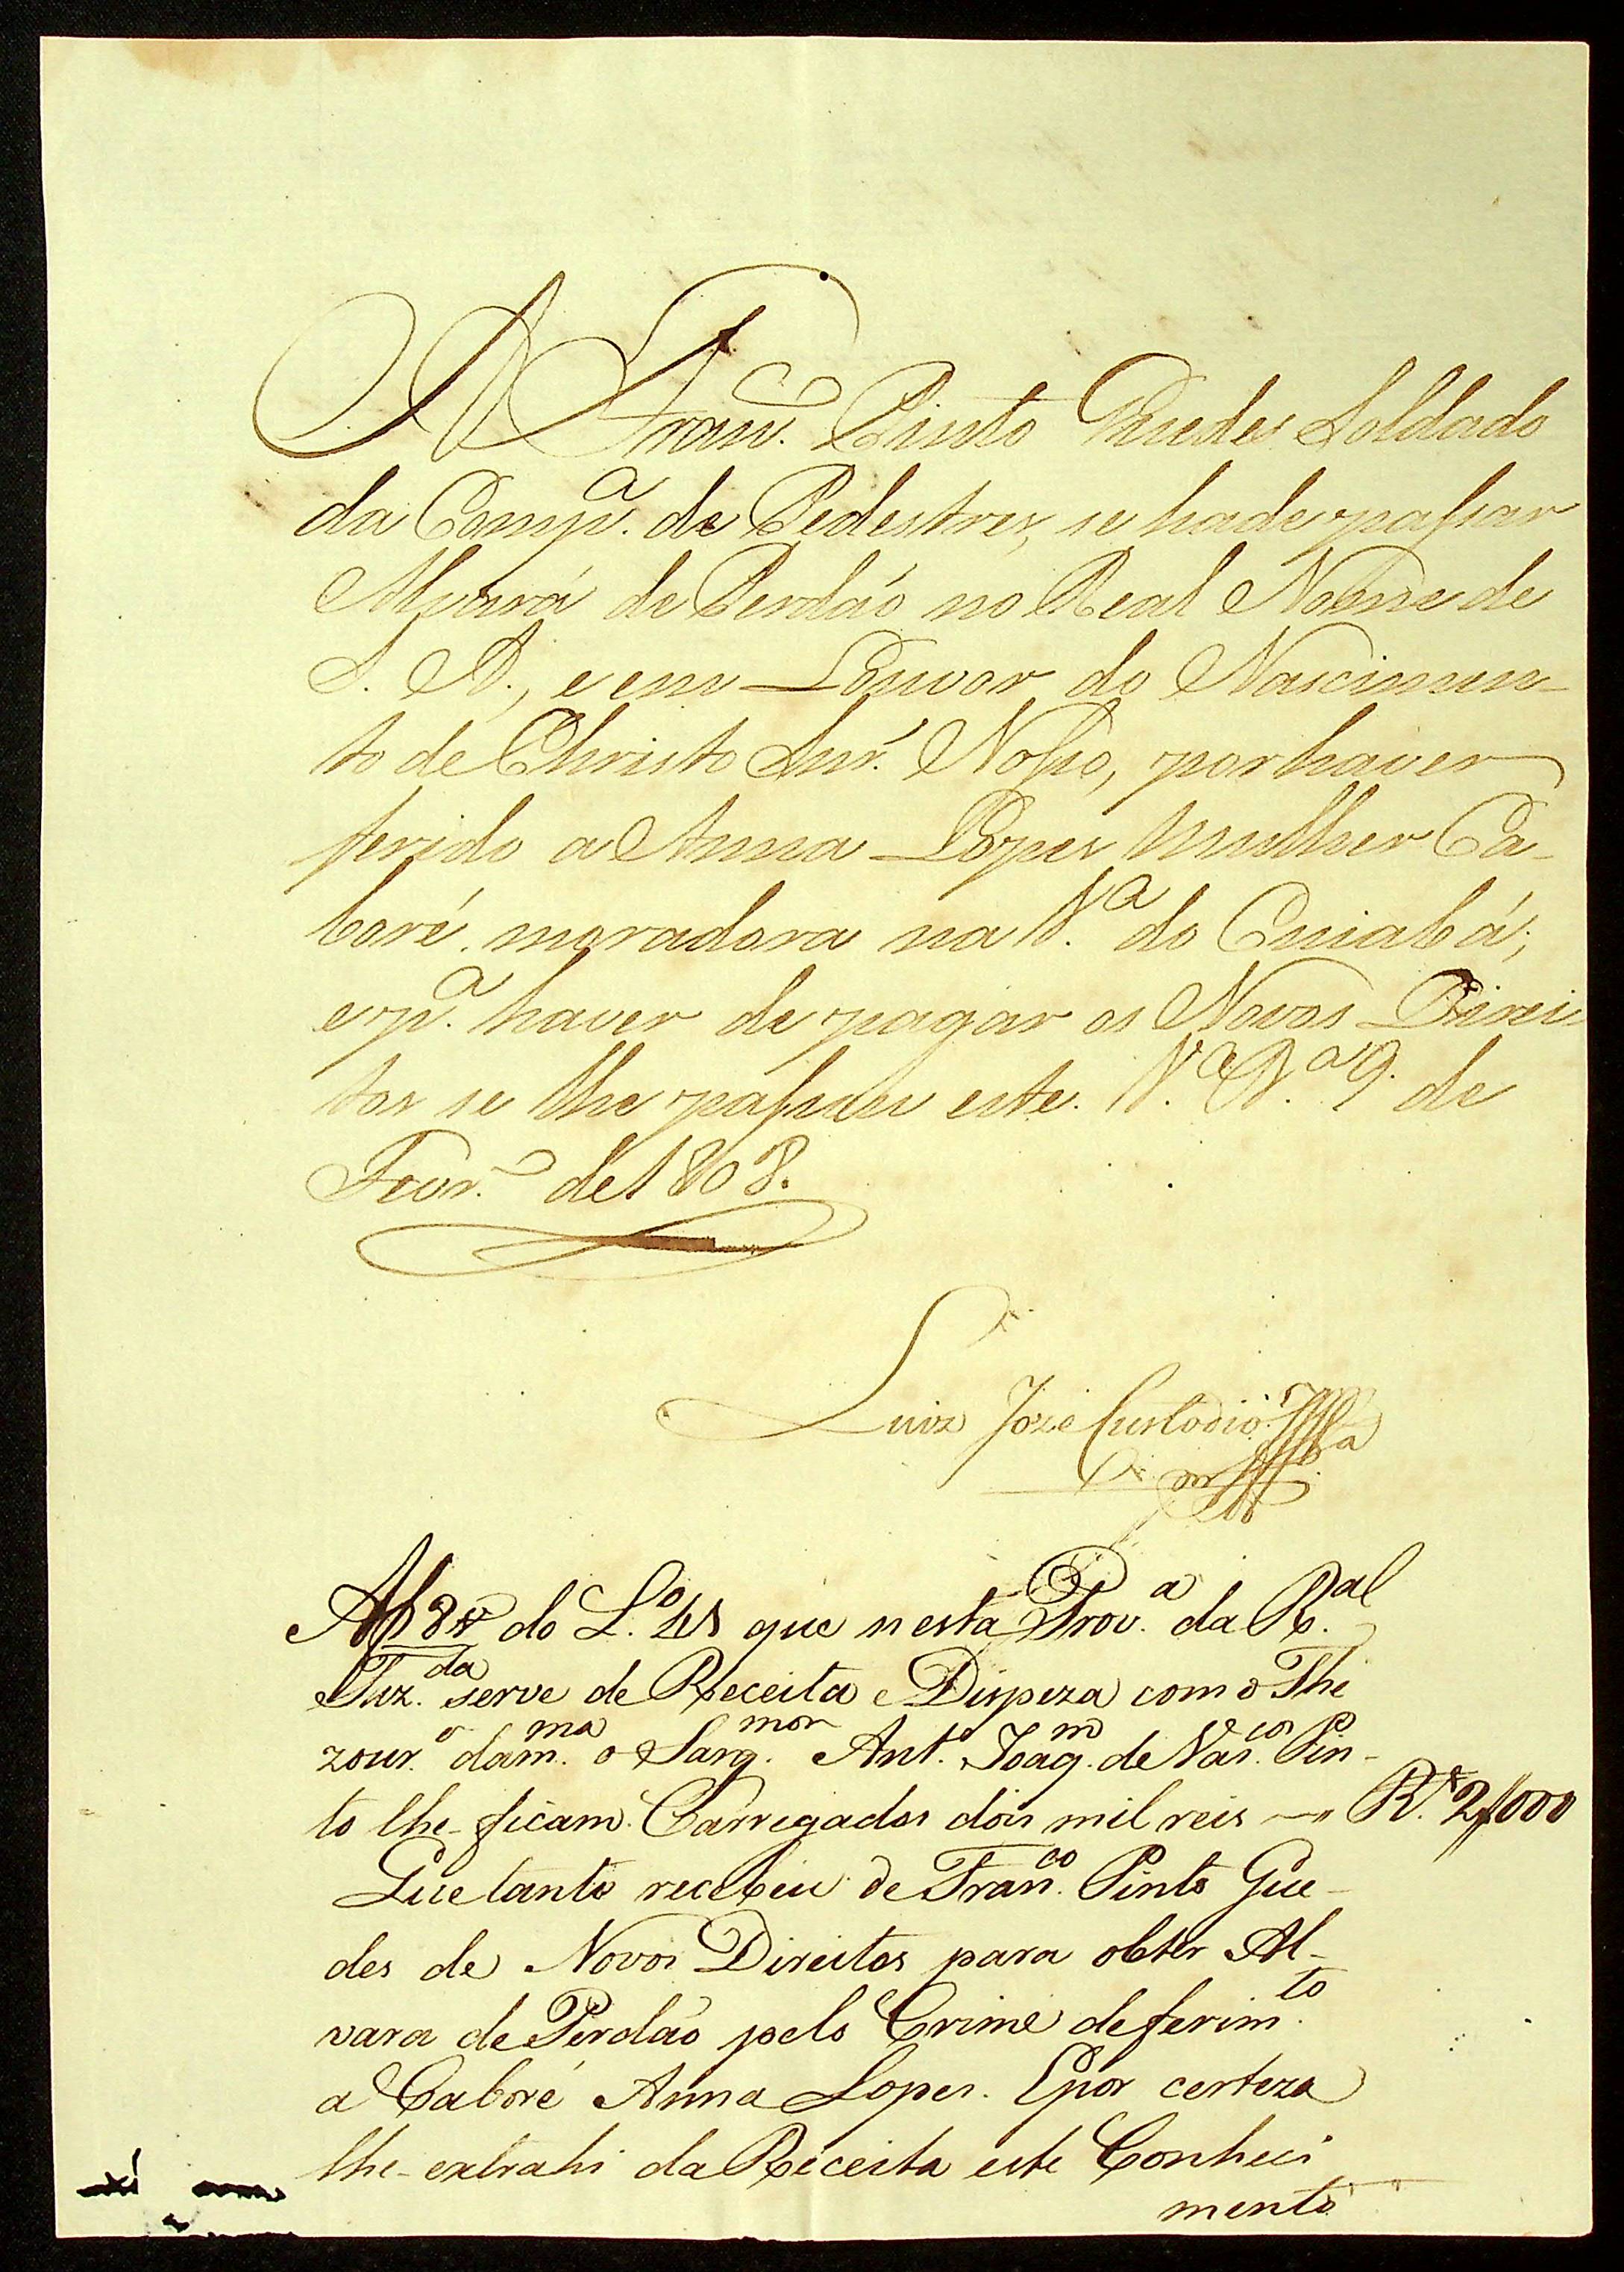 A Fran.co Pinto Guedes Soldado
da Comp.a de Pedestres, se hade passar
Alvará de Perdaõ no Real Nome de
S. A., e em Louvor do Nascimen-
to de Christo Snr. Nosso, por haver
ferido a Anna Lopes mulher Ca-
boré, moradora na V.a do Cuiabá;
e p.a haver de pagar os Novos Direi
tos se lhe passou este. V.a B.a 9. de
Fevr.o de 1808.
Luiz Jozé Custodio
Af do L.o que nesta Prov.a da R.al
Faz.da serve de Receita e Dispeza com o The
zour.o da m.ma o Sarg.mor Ant.o Joaq.m de Vas.cos Pin-
to lhe ficam Carregados dois mil reis R.s 2//000
Que tanto recebeu de Fran.co Pinto Gue-
des de Novos Direitos para obter Al-
vara de Perdaõ pelo Crime de ferim.to
a Caboré Anna Lopes. E por certeza
lhe extrahi da Receita este Conheci
mento